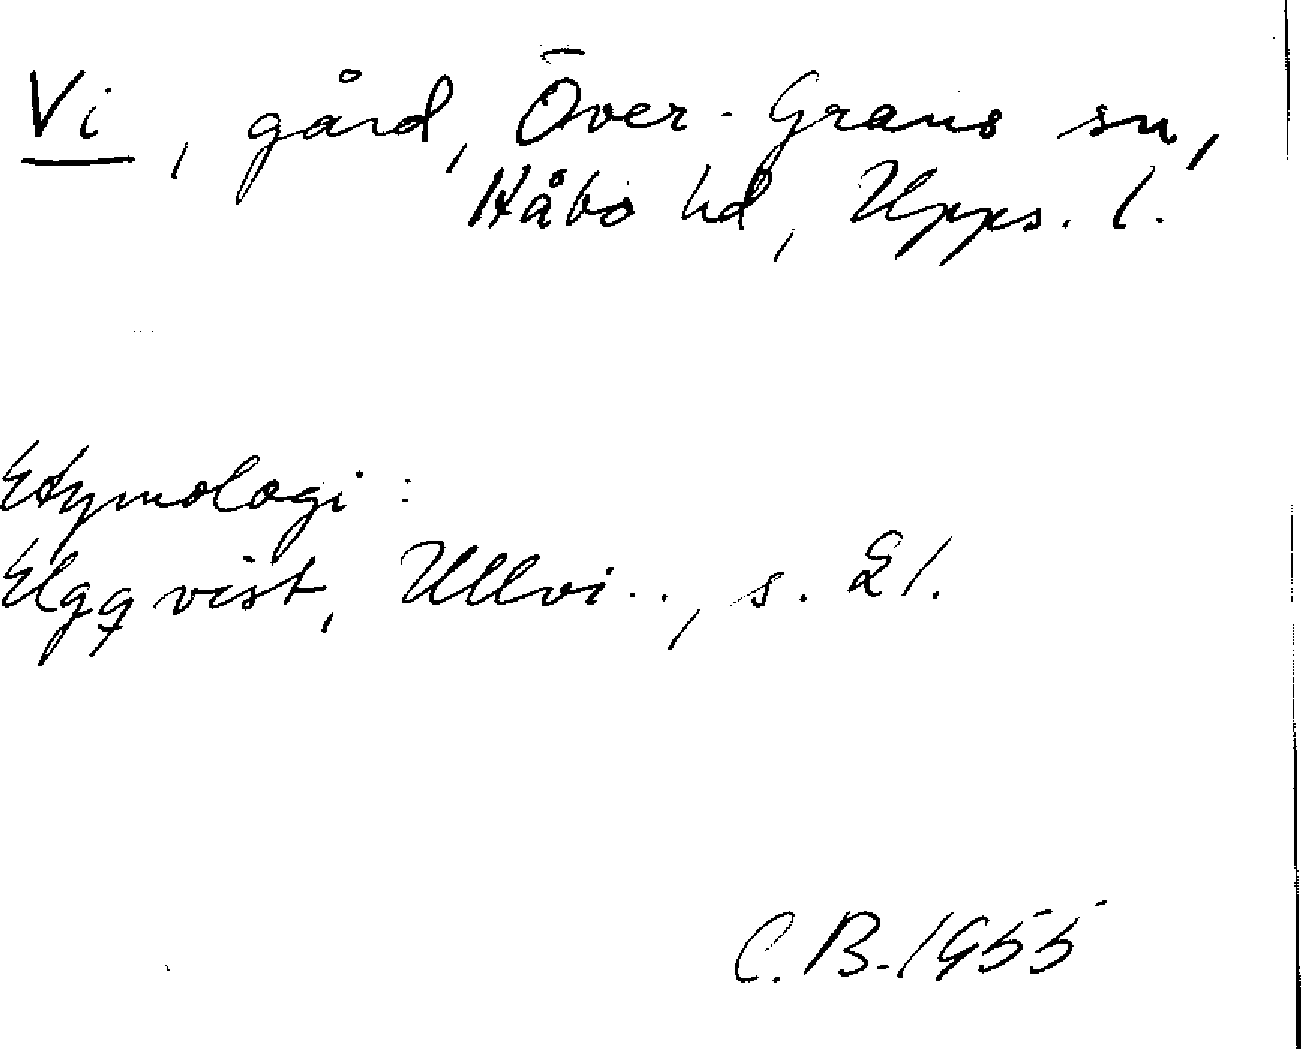 Vi, gård, Över-Grans sn,
Håbo hd, Upps. l.
Etymologi:
Elgqvist, Ullvi.., s. 21.
C.B. 1955